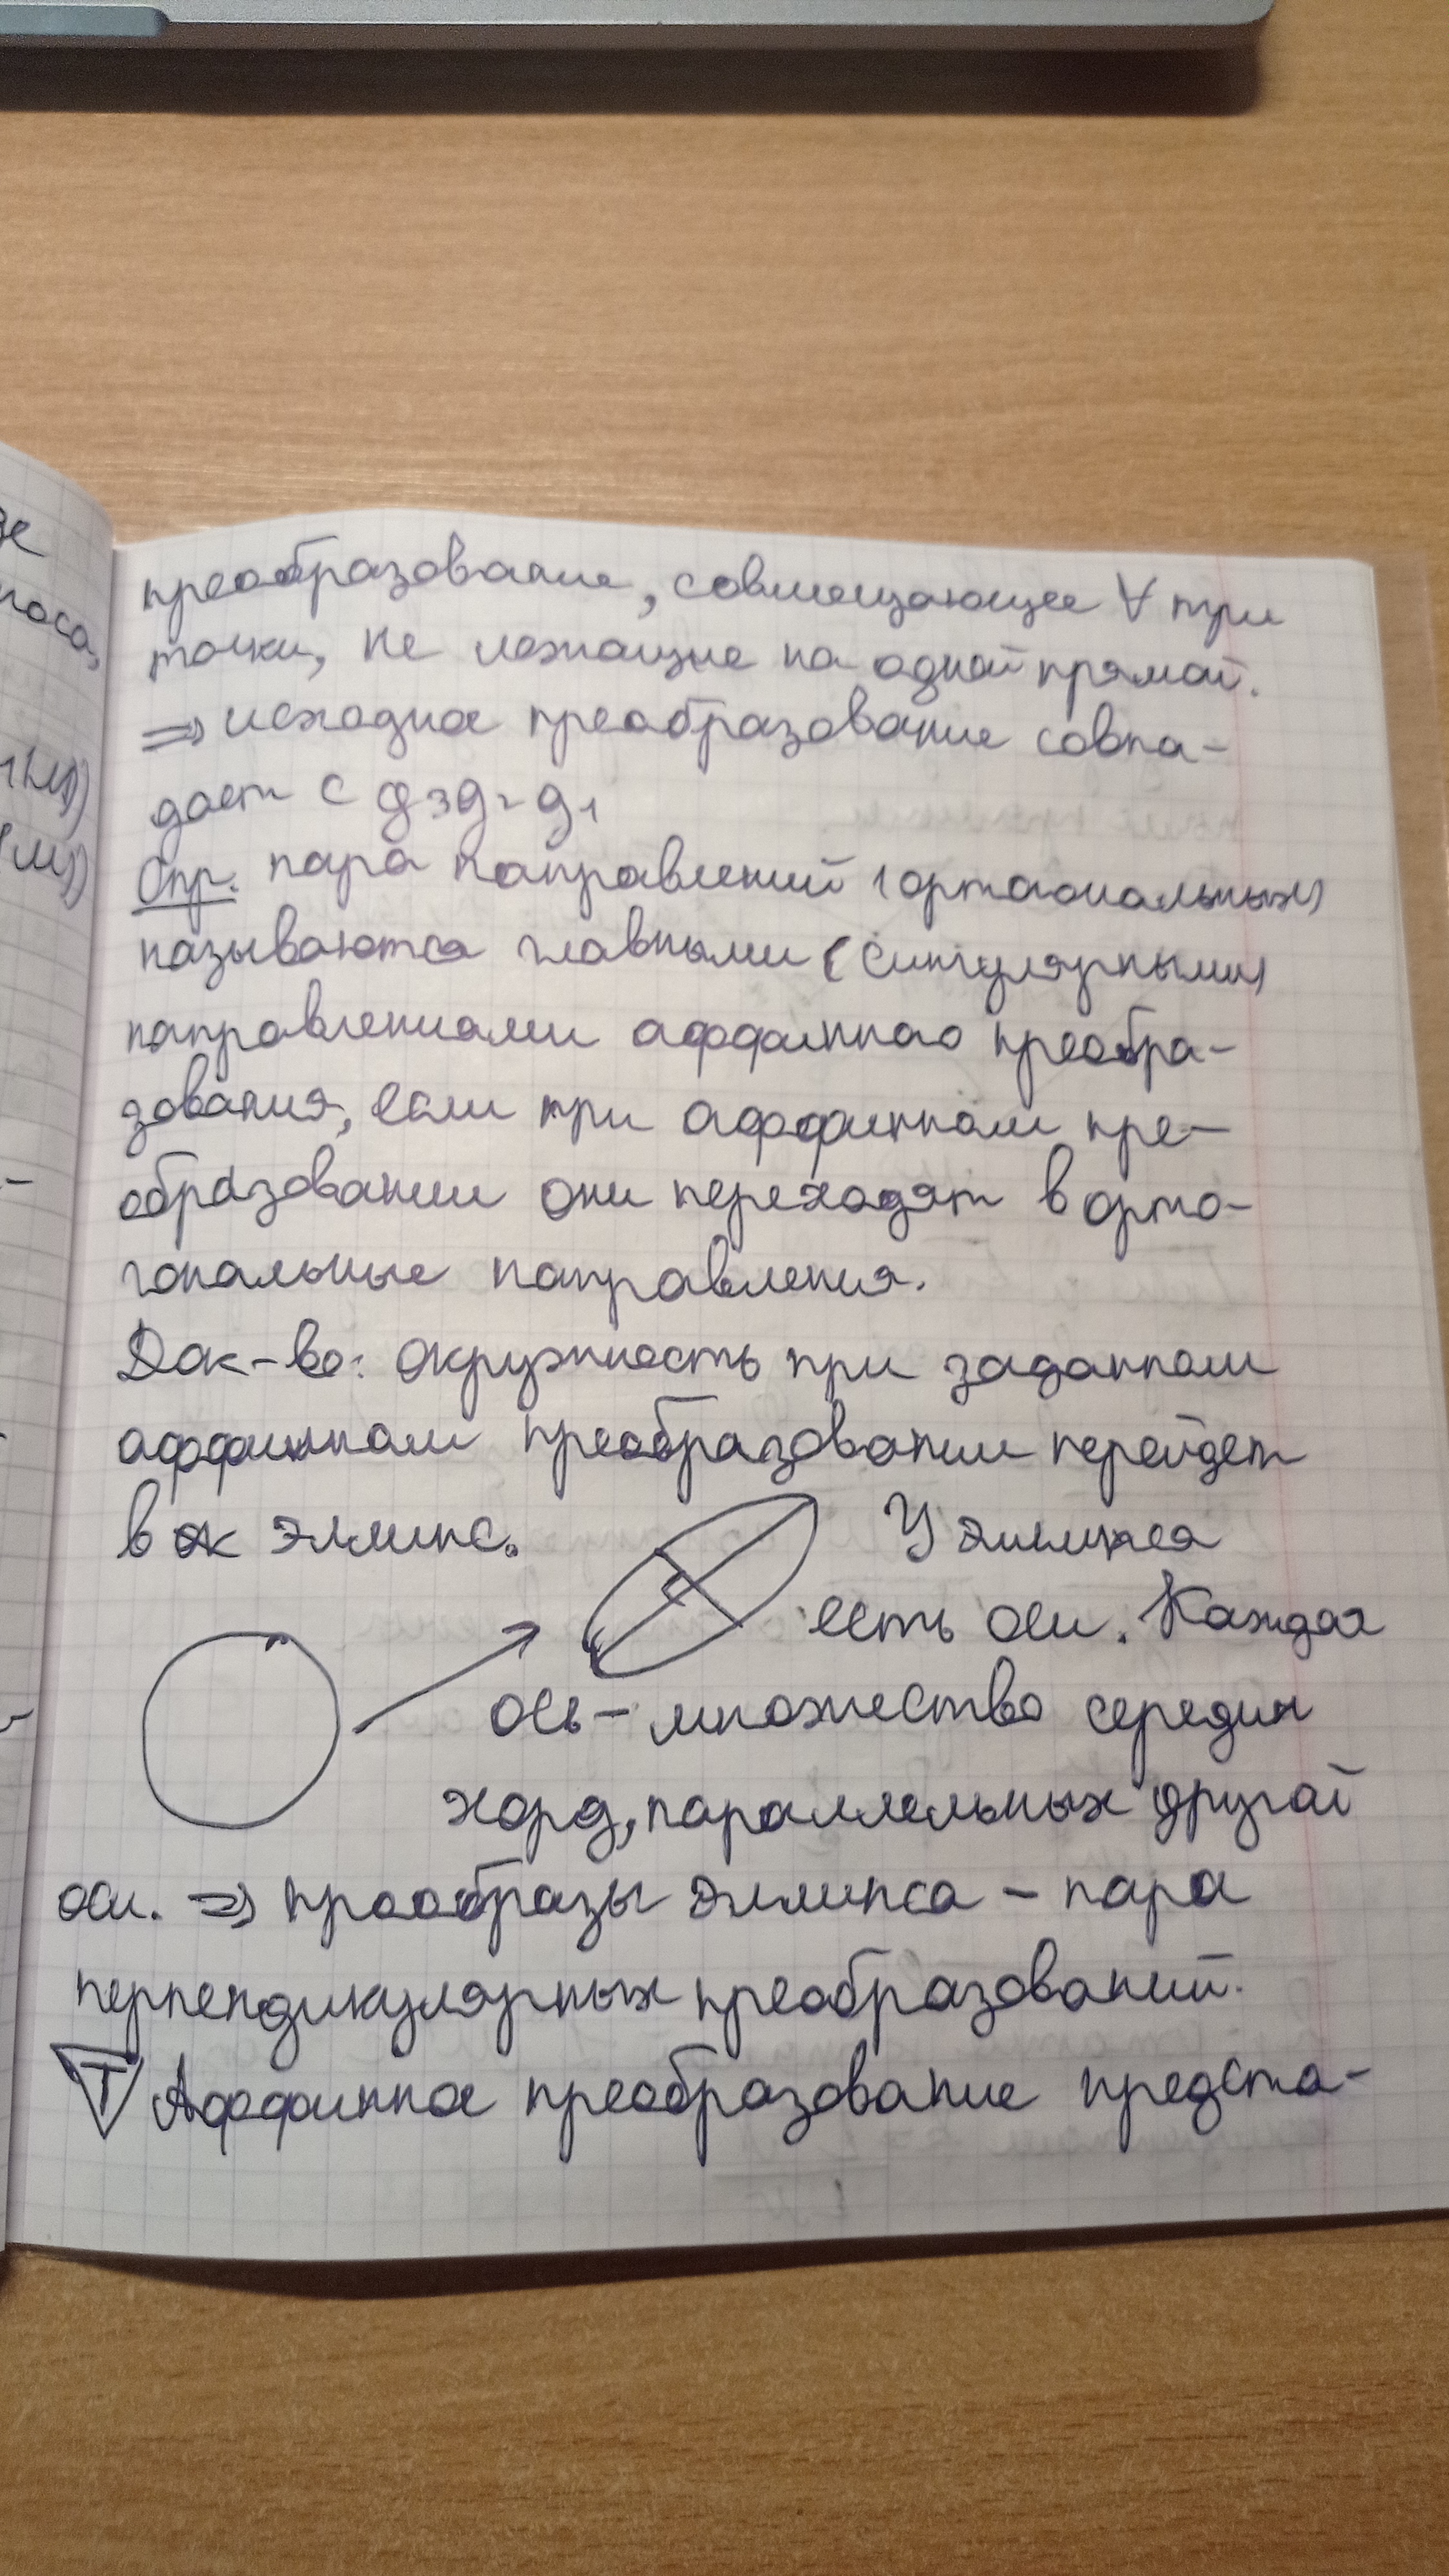 преобразование, совмещающее ∀ три
точки, не лежащие на одной прямой.
⇒ исходное преобразование совпа-
дает с g3g2g1
Опр. пара направлений (ортогональных)
называются главными (сингулярными)
направлениями аффинного преобра-
зования, если при аффинном пре-
образовании они переходят в орто-
гональные направления.
Док-во: окружность при заданном
аффинном преобразовании перейдет
в эллипс. У эллипса
есть оси. Каждая
ось – множество середин
хорд, параллельных другой
оси. ⇒ прообразы эллипса – пара
перпендикулярных преобразований.
Т Аффинное преобразование предста-